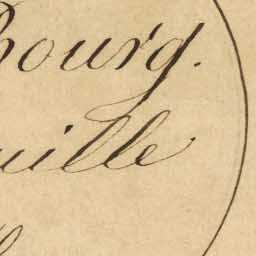 bourg.
uille